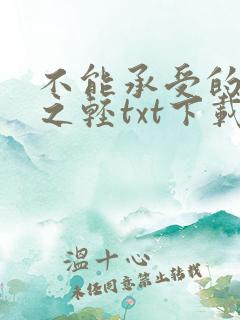 不能承受的
之轻txt下载
温十心
未经同意禁止转载